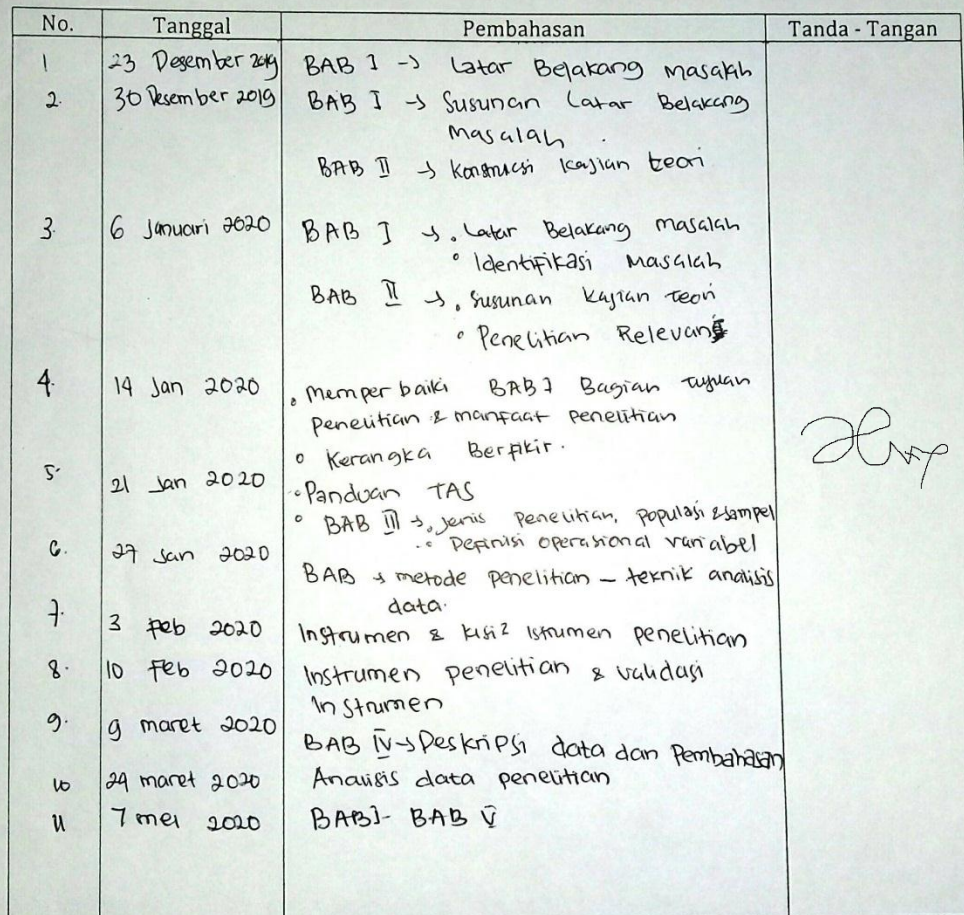 No. Tanggal Pembahasan Tanda - Tangan
1 23 Desember 2019 BAB I -> Latar Belakang Masalah
2. 30 Desember 2019 BAB I -> Susunan Latar Belakang
Masalah.
BAB II -> Konstruksi Kajian teori
3. 6 Januari 2020 BAB I -> • Latar Belakang Masalah
• Identifikasi Masalah
BAB II -> • Susunan Kajian Teori
• Penelitian Relevan
4. 14 Jan 2020 • Memper baiki BAB I Bagian tujuan
penelitian & manfaat penelitian
• Kerangka Berfikir.
5. 21 Jan 2020 • Panduan TAS
• BAB III -> • Jenis penelitian, populasi & sampel
• Definisi operasional variabel
6. 27 Jan 2020
BAB -> metode penelitian – teknik analisis
data.
7. 3 Feb 2020 Instrumen & kisi² Istrumen penelitian
8. 10 Feb 2020 Instrumen penelitian & validasi
Instrumen
9. 9 maret 2020
BAB IV -> Deskripsi data dan Pembahasan
10 24 maret 2020 Analisis data penelitian
11 7 mei 2020 BAB I - BAB V